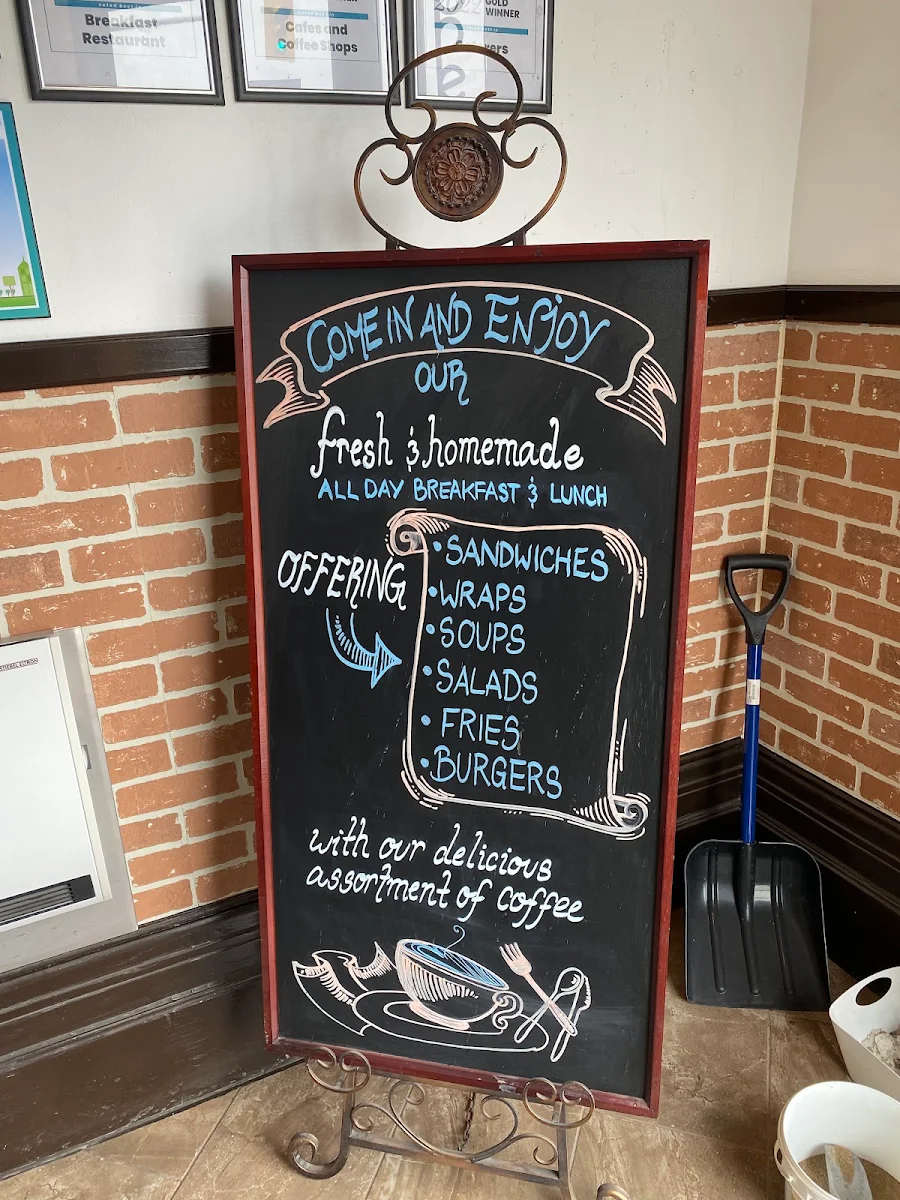 Breakfast
Restaurant
Cafes and
Coffee Shops
2022 GOLD
WINNER
COME IN AND ENJOY
OUR
fresh & homemade
ALL DAY BREAKFAST & LUNCH
OFFERING
• SANDWICHES
• WRAPS
• SOUPS
• SALADS
• FRIES
• BURGERS
with our delicious
assortment of coffee